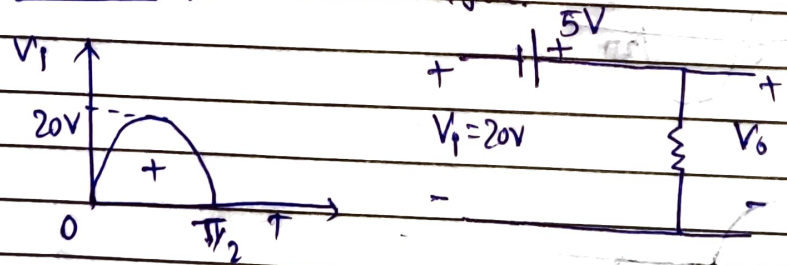 Vi
20V
+
0 π/2 T
5V
+ +
+
Vi=20V Vo
- -